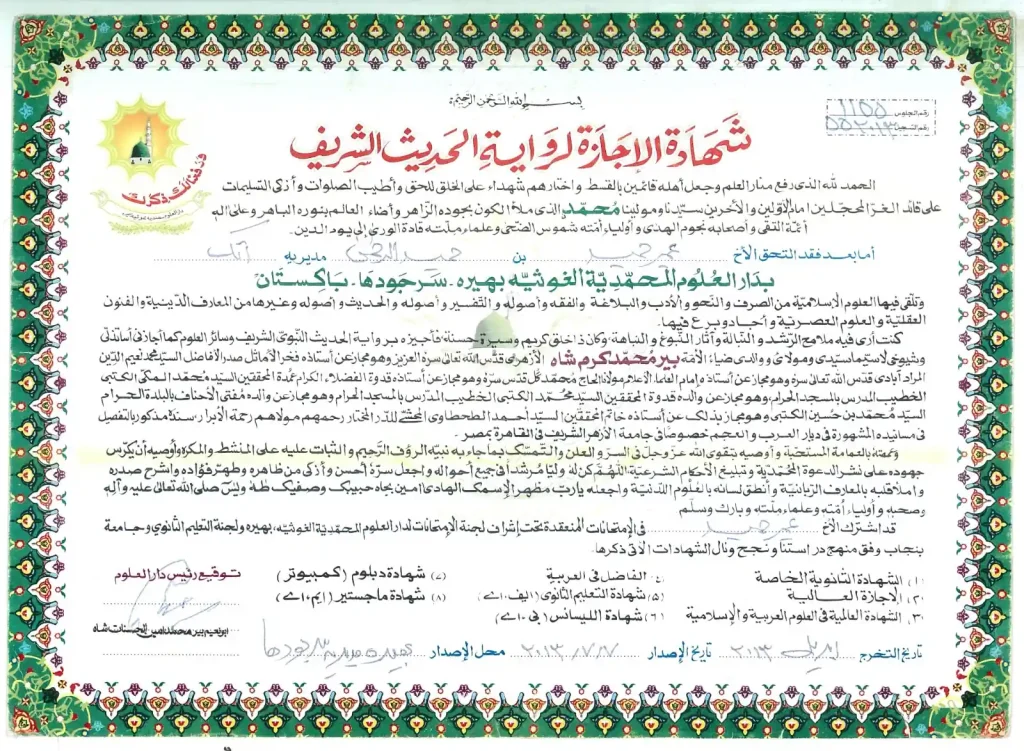 بسم الله الرحمن الرحيم
رقم الجلوس ١١٥٥
رقم التسجيل
شهادة الإجازة لرواية الحديث الشريف
ورفعنا لك ذكرك
الحمد لله الذى رفع منار العلم وجعل أهله قائمين بالقسط واختارهم شهداء على الخلق للحق وأطيب الصلوات وأزكى التسليمات
على قائد الغر المحجلين امام الأولين والأخرين سيدنا ومولينا محمد الذى ملأ الكون بجوده الزاهر وأضاء العالم بنوره الباهر وعلى آله
أئمة التقى وأصحابه نجوم الهدى وأولياء امته شموس الضحى وعلماء ملته قادة الورى إلى يوم الدين.
أما بعد فقد التحق الأخ عمر حميد بن حميد مديرية اٹک
بدار العلوم المحمدية الغوثيه بهيره - سرجودها - باكستان
وتلقى فيها العلوم الاسلامية من الصرف والنحو والأدب والبلاغة والفقه وأصوله والتفسير وأصوله والحديث وأصوله وغيرها من المعارف الدينية والفنون
العقلية والعلوم العصرية وأجاد وبرع فيها.
كنت أرى فيه ملامح الرشد والنبالة وآثار النبوغ والنباهة وكان ذا خلق كريم وسيرة حسنة فأجيزه برواية الحديث النبوى الشريف وسائر العلوم كما أجازنى أساتذتى
وشيوخى لاسيما سيدى ومولاى ووالدى ضياء الأمة بير محمد كرم شاه الأزهرى قدس الله تعالى سره العزيز وهو مجاز عن أستاذه فخر الأماثل صدر الافاضل السيد محمد نعيم الدين
المراد آبادى قدس الله تعالى سره وهو مجاز عن أستاذه وإمام العلماء الأعلام مولانا الحاج محمد گل قدس سره وهو مجاز عن أستاذه قدوة الفضلاء الكرام عمدة المحققين السيد محمد المكى الكتبى
الخطيب المدرس بالمسجد الحرام وهو مجاز عن والده قدوة المحققين السيد محمد الكتبى الخطيب المدرس بالمسجد الحرام وهو مجاز عن والده مفتى الأحناف بالبلدة الحرام
السيد محمد بن حسين الكتبى وهو مجاز بذلك عن أستاذه خاتم المحققين السيد أحمد الطحطاوى المحشى للدر المختار رحمهم مولاهم رحمة الأبرار وسنده مذكور بالتفصيل
فى مسانيده المشهورة فى ديار العرب والعجم خصوصا فى جامعة الأزهر الشريف فى القاهرة بمصر.
وعممته بالعمامة المستحبة وأوصيه بتقوى الله عز وجل فى السر والعلن والتمسك بما جاء به نبيه الرؤف الرحيم والثبات عليه على المنشط والمكره وأوصيه أن يكرس
جهوده على نشر الدعوة المحمدية وتبليغ الأحكام الشرعية اللهم كن له وليا مرشدا فى جميع أحواله واجعل سره أحسن وأزكى من ظاهره وطهر فؤاده واشرح صدره
واملأ قلبه بالمعارف الربانية وأنطق لسانه بالعلوم اللدنية واجعله يارب مظهر الإسمك الهادى آمين بجاه حبيبك وصفيك طه ويس صلى الله تعالى عليه وآله
وصحبه وأولياء امته وعلماء ملته وبارك وسلم
قد اشترك الأخ عمر حميد فى الإمتحانات المنعقدة تحت إشراف لجنة الإمتحانات لدار العلوم المحمدية الغوثيه، بهيره ولجنة التعليم الثانوي وجامعة
بنجاب وفق منهج دراستنا ونجح ونال الشهادات الآتى ذكرها.
(١) الشهادة الثانوية الخاصة (٤) الفاضل فى العربية (٧) شهادة دبلوم (كمبيوتر) توقيع رئيس دار العلوم
(٢) الإجازة العالية (٥) شهادة التعليم الثانوى (ايف-اے) (٨) شهادة ماجستير (ايم-اے)
(٣) الشهادة العالمية فى العلوم العربية والإسلامية (٦) شهادة الليسانس (بى-اے)
ابو نعيم بير محمد امين الحسنات شاه
تاريخ التخرج ابريل ٢٠١٣ تاريخ الإصدار ٢٠١٣/٧/٧ محل الإصدار بهيره مديرية سرجودها